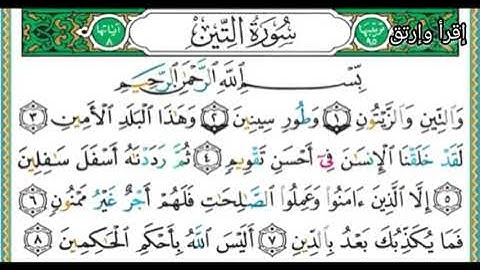 إقرأ وارتق
ترتيبها ٩٥
سُورَةُ التِّينِ
آياتها ٨
بِسْمِ اللَّهِ الرَّحْمَٰنِ الرَّحِيمِ
وَالتِّينِ وَالزَّيْتُونِ ١ وَطُورِ سِينِينَ ٢ وَهَٰذَا الْبَلَدِ الْأَمِينِ ٣
لَقَدْ خَلَقْنَا الْإِنسَٰنَ فِي أَحْسَنِ تَقْوِيمٍ ٤ ثُمَّ رَدَدْنَٰهُ أَسْفَلَ سَٰفِلِينَ
٥ إِلَّا الَّذِينَ ءَامَنُوا وَعَمِلُوا الصَّٰلِحَٰتِ فَلَهُمْ أَجْرٌ غَيْرُ مَمْنُونٍ ٦
فَمَا يُكَذِّبُكَ بَعْدُ بِالدِّينِ ٧ أَلَيْسَ اللَّهُ بِأَحْكَمِ الْحَٰكِمِينَ ٨